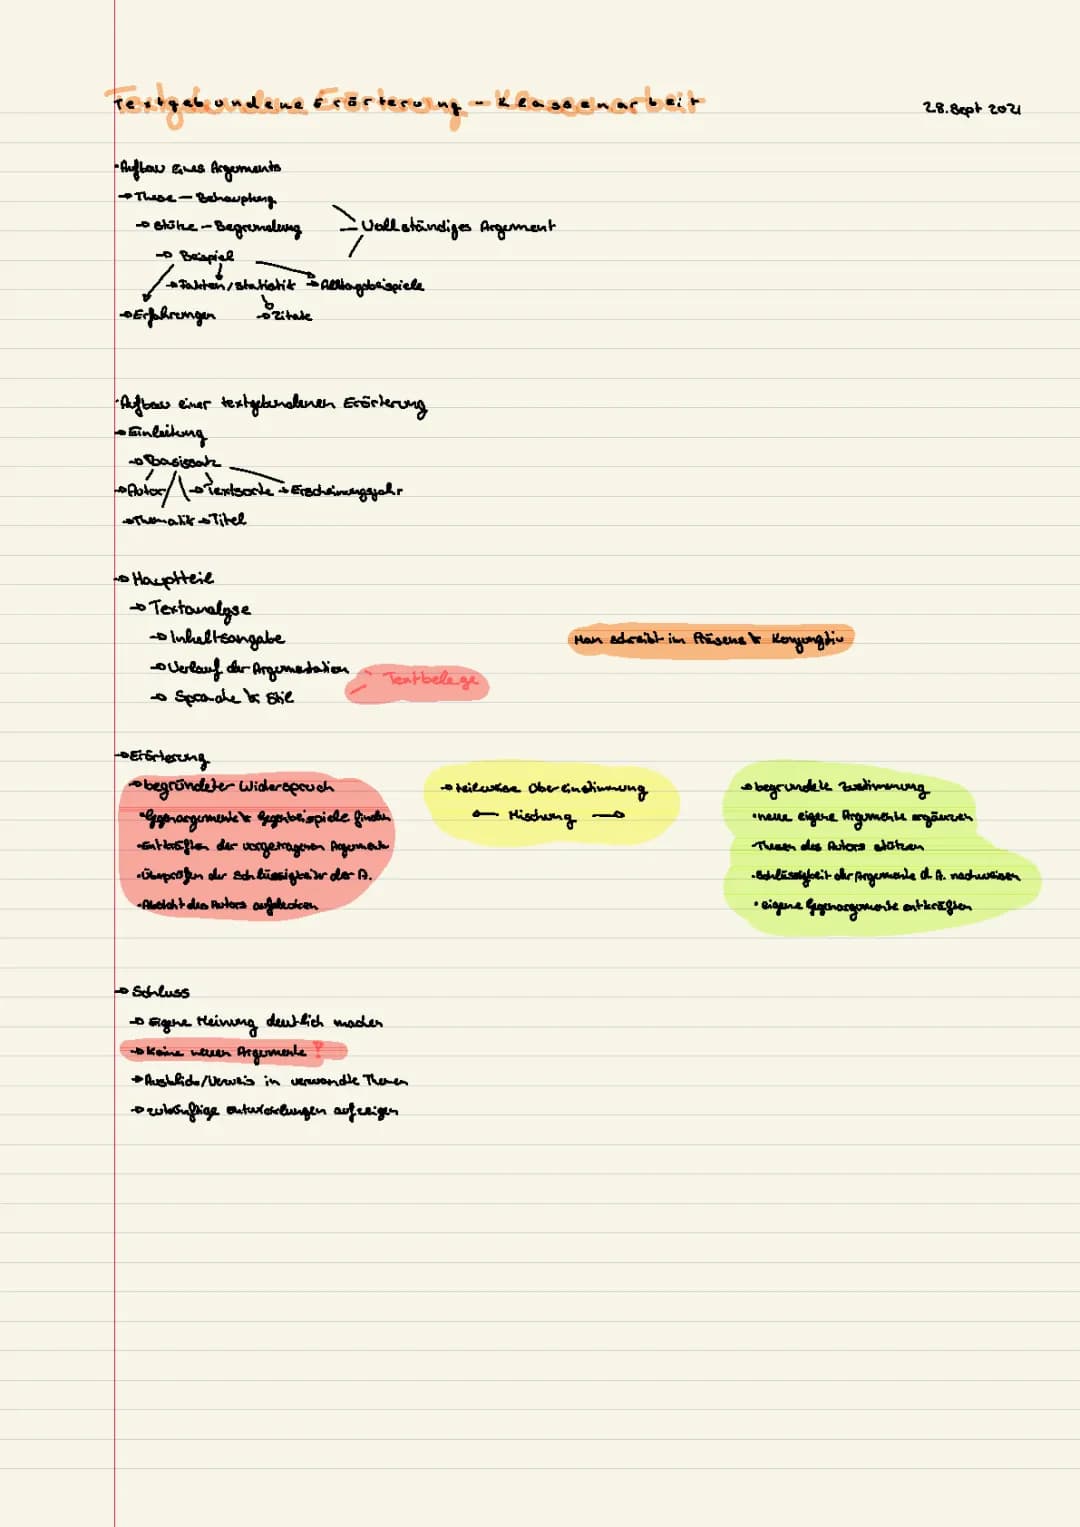 Textgebundene Erörterung - Klassenarbeit
28. Sept 2021
·Aufbau Eines Arguments
→ These – Behauptung
→ Stütze – Begründung
Vollständiges Argument
→ Beispiel
→ Fakten/Statistik → Alltagsbeispiele
→ Erfahrungen → Zitate
·Aufbau einer textgebundenen Erörterung
→ Einleitung
→ Basissatz
→ Autor → Textsorte → Erscheinungsjahr
→ Thematik → Titel
→ Hauptteil
→ Textanalyse
→ Inhaltsangabe
Man schreibt im Präsens & Konjunktiv
→ Verlauf der Argumentation
Textbelege
→ Sprache & Stil
→ Erörterung
→ begründeter Widerspruch
·Gegenargumente & Gegenbeispiele finden
·Entkräften der vorgetragenen Argumente
·Überprüfen der Schlüssigkeit der A.
·Absicht des Autors aufdecken
→ teilweise Übereinstimmung
← Mischung →
→ begründete Zustimmung
·neue eigene Argumente ergänzen
·Thesen des Autors stützen
·Schlüssigkeit der Argumente d. A. nachweisen
·eigene Gegenargumente entkräften
→ Schluss
→ Eigene Meinung deutlich machen
→ Keine neuen Argumente !
→ Ausblick/Verweis in verwandte Themen
→ zukünftige Entwicklungen aufzeigen